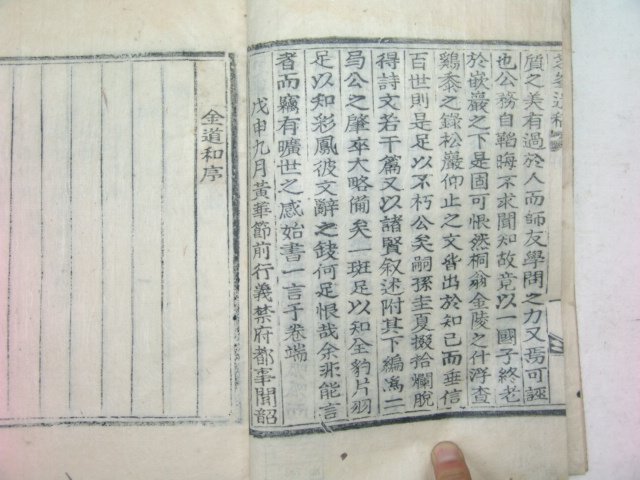 質之美有過於人而師友學問之力又焉可誣
也公務自韜晦不求聞知故竟以一國子終老
於嵌巖之下是固可恨然桐翁金陵之什浮査
鷄黍之錄松巖仰止之文皆出於知己而垂信
百世則是足以不朽公矣嗣孫圭夏掇拾爛脫
得詩文若干篇又以諸賢叙述附其下編爲二
局公之肇卒大略備矣一斑足以知全豹片羽
足以知彩鳳彼文辭之鈌何足恨哉余非能言
者而竊有曠世之感始書一言于卷端
戊申九月黃華節前行義禁府都事聞韶
金道和序